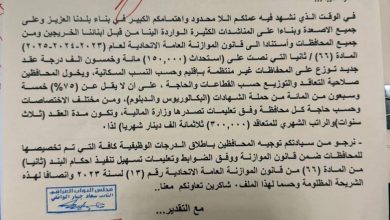 في الوقت الذي نشهد فيه عملكم اللا محدود واهتمامكم الكبير في بناء بلدنا العزيز وعلى
جميع الاصعدة وبناءاً على المناشدات الكثيرة الواردة الينا من قبل ابنائنا الخريجين ومن
جميع المحافظات وأستنادا الى قانون الموازنة العامة الاتحادية لعام (٢٠٢٣-٢٠٢٤-٢٠٢٥)
المادة (٦٦/ ثانيا) التي نصت على (استحداث (١٥٠,٠٠٠) مائة وخمسون الف درجة عقد
جديد توزع على المحافظات غير منتظمة بإقليم وحسب النسب السكانية، ويخول المحافظين
صلاحية التعاقد والتوزيع حسب القطاعات والحاجة، على ان لا يقل عن (٧٥%) خمسة
وسبعون من المائة من حملة الشهادات (البكالوريوس والدبلوم)، ومن مختلف الاختصاصات
وحسب حاجة كل محافظة وفق تعليمات تصدرها وزارة المالية، وتكون مدة العقد (ثلاث
سنوات) والراتب الشهري للمتعاقد (٣٠٠,٠٠٠) ثلاثمائة الف دينار شهريا) لذا.
- نرجو من سيادتكم توجيه المحافظين بإطلاق الدرجات الوظيفية كافة التي تم تخصيصها
للمحافظات ضمن قانون الموازنة ووفق الضوابط وتعليمات تسهيل تنفيذ احكام البند (ثانيا)
من المادة (٦٦) من قانون الموازنة العامة الاتحادية رقم (١٣) لسنة ٢٠٢٣ وانصافا لهذه
الشريحة المظلومة وحسما لهذا الملف. شاكرين تعاونكم معنا.
مع التقدير..
مجلس النواب العراقي
النائب